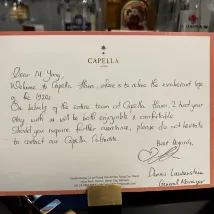 CAPELLA
Dear Mr Yong,
Welcome to Capella Hanoi, where is to relive the exuberant age
of the 1920s.
On behalf of the entire team at Capella Hanoi, I trust your
stay with us will be both enjoyable & comfortable.
Should you require further assistance, please do not hesitate
to contact our Capella Culturists.
Best Regards,
Dennis Laubenstein
General Manager